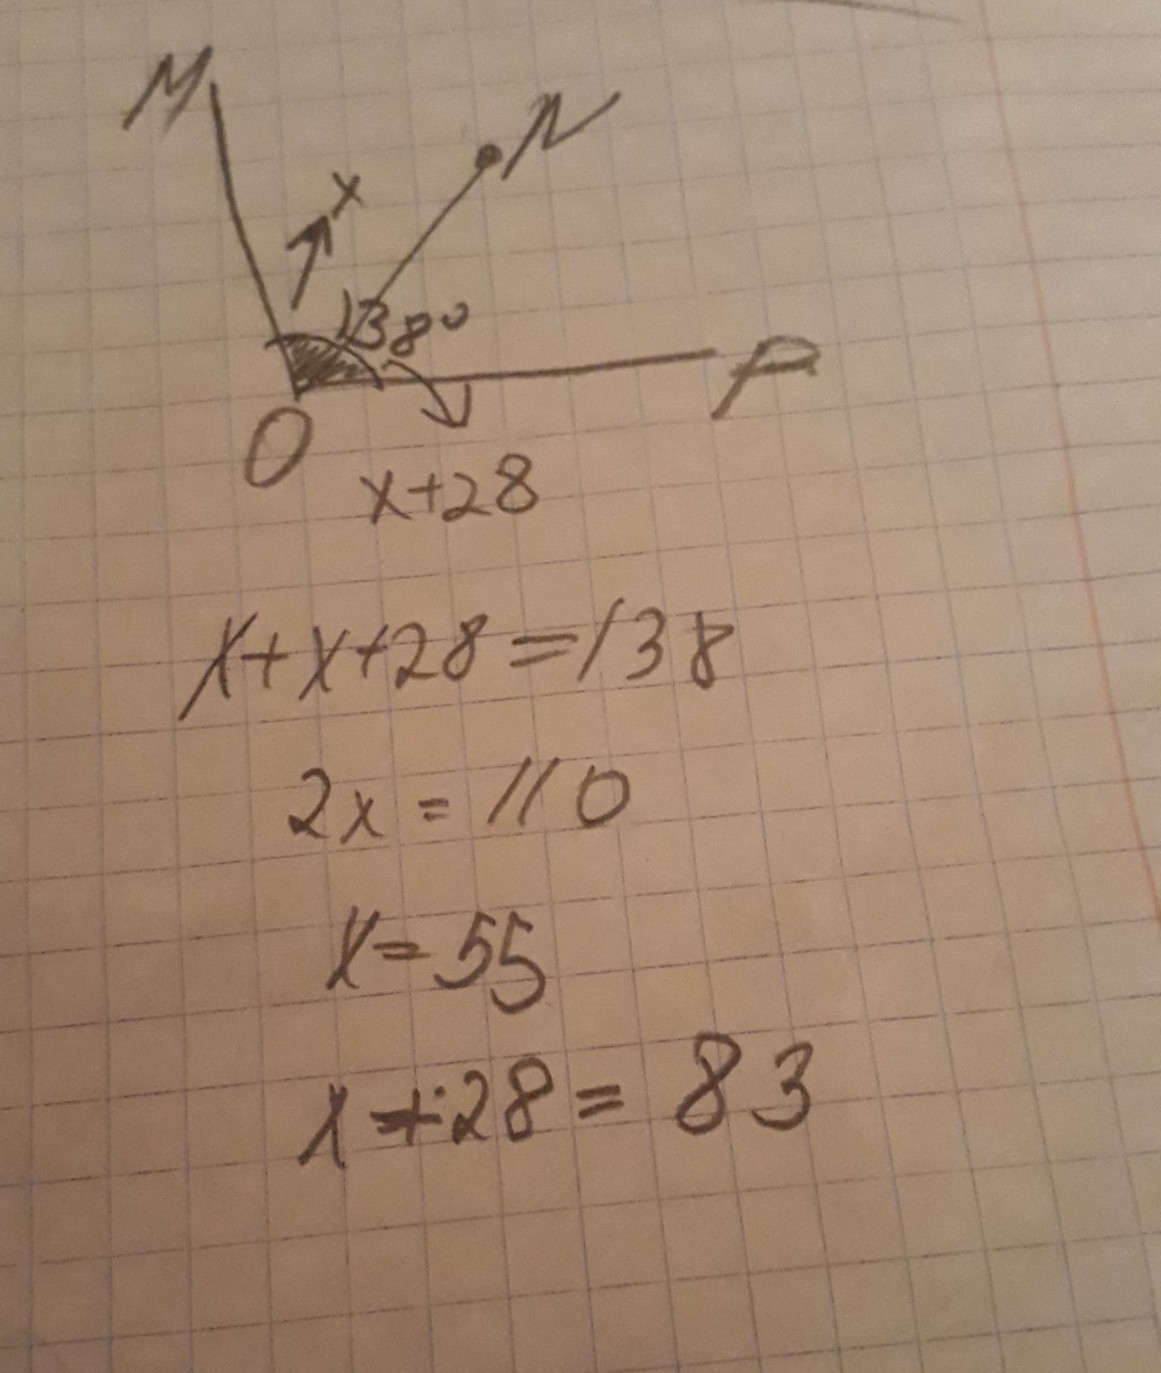 M
N
x
138°
P
O
x+28
x+x+28=138
2x=110
x=55
x+28=83